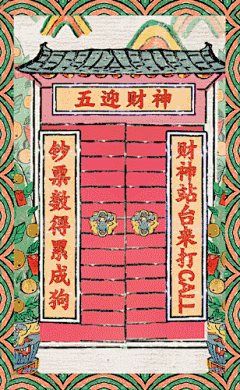 五迎财神
财神站台来打CALL
钞票数得累成狗